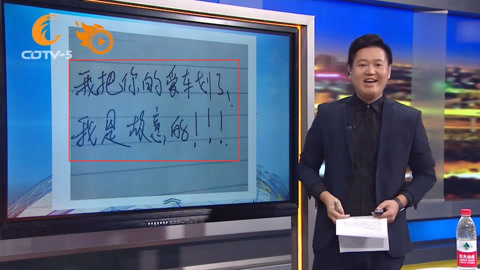 CDTV-5
我把你的爱车划了，
我是故意的！！！